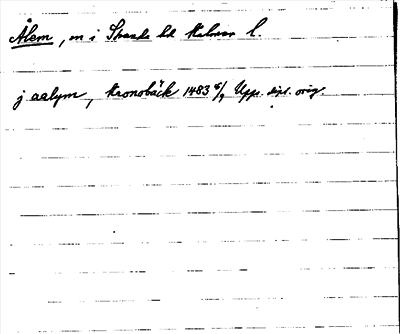 Ålem, sn i Stranda hd Kalmar l.
j aalym, Kronobäck 1483 6/9 Upps. dipl. orig.